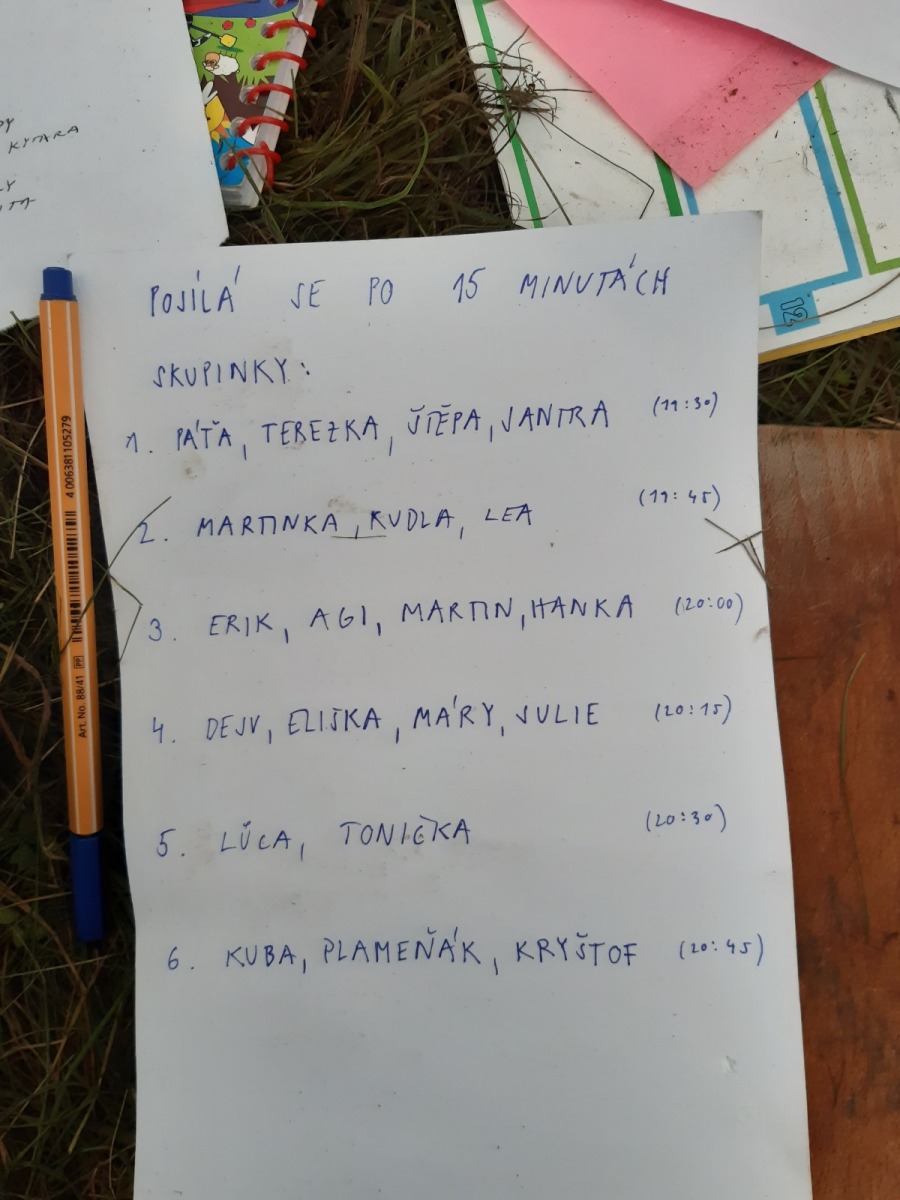 KYTARA
POSÍLÁ SE PO 15 MINUTÁCH
SKUPINKY:
1. PÁŤA, TEREZKA, ŠTĚPA, JANTRA (19:30)
2. MARTINKA, KUDLA, LEA (19:45)
3. ERIK, AGI, MARTIN, HANKA (20:00)
4. DEJV, ELIŠKA, MÁRY, JULIE (20:15)
5. LŮCA, TONIČKA (20:30)
6. KUBA, PLAMEŇÁK, KRYŠTOF (20:45)
4 006381 105279
Art. No. 88/41 PP
12